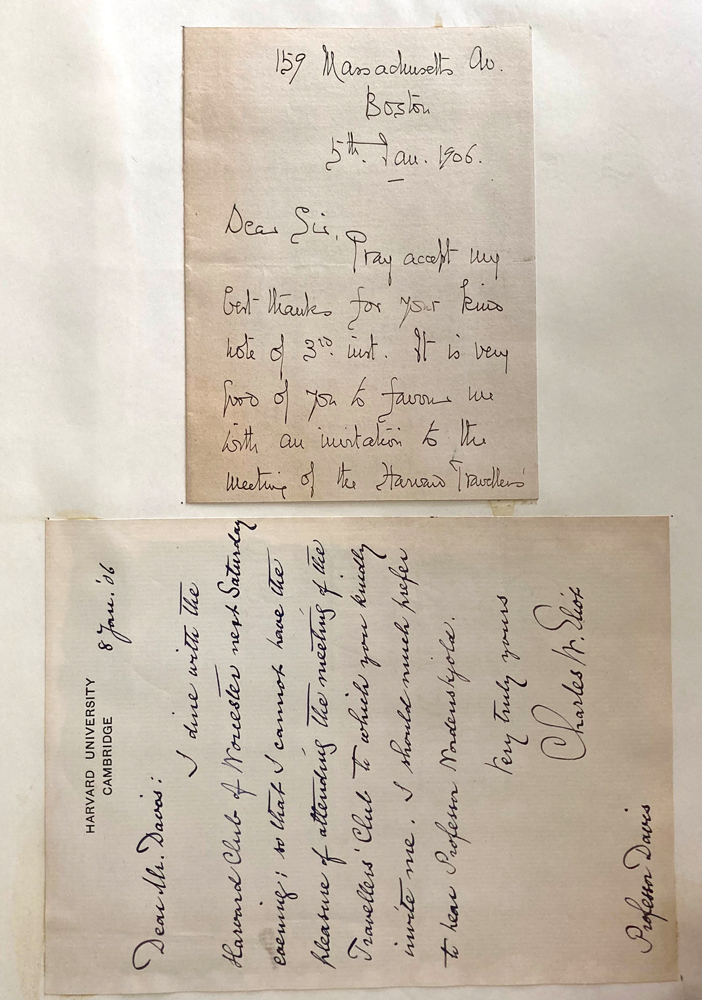 159 Massachusetts Av.
Boston
5th. Jan. 1906.
Dear Sir,
Pray accept my
best thanks for your kind
note of 3rd. inst. It is very
good of you to favour me
with an invitation to the
meeting of the Harvard Travellers'
HARVARD UNIVERSITY
CAMBRIDGE
8 Jan. '06
Dear Mr. Davis:
I dine with the
Harvard Club of Worcester next Saturday
evening; so that I cannot have the
pleasure of attending the meeting of the
Travellers' Club to which you kindly
invite me. I should much prefer
to hear Professor Nordenskjold.
Very truly yours
Charles W. Eliot
Professor Davis